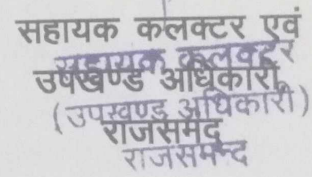 सहायक कलक्टर एवं
सहायक कलक्टर
उपखण्ड अधिकारी,
(उपखण्ड अधिकारी)
राजसमंद
राजसमन्द